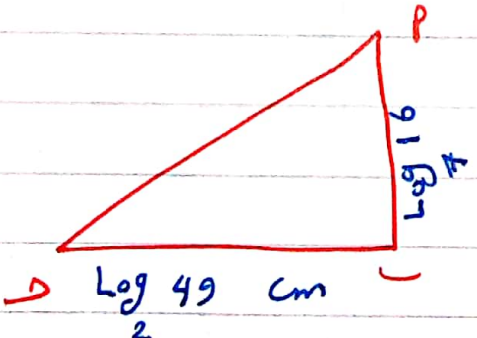 أ
Log₇ 16
ب
Log₂ 49 cm
ج